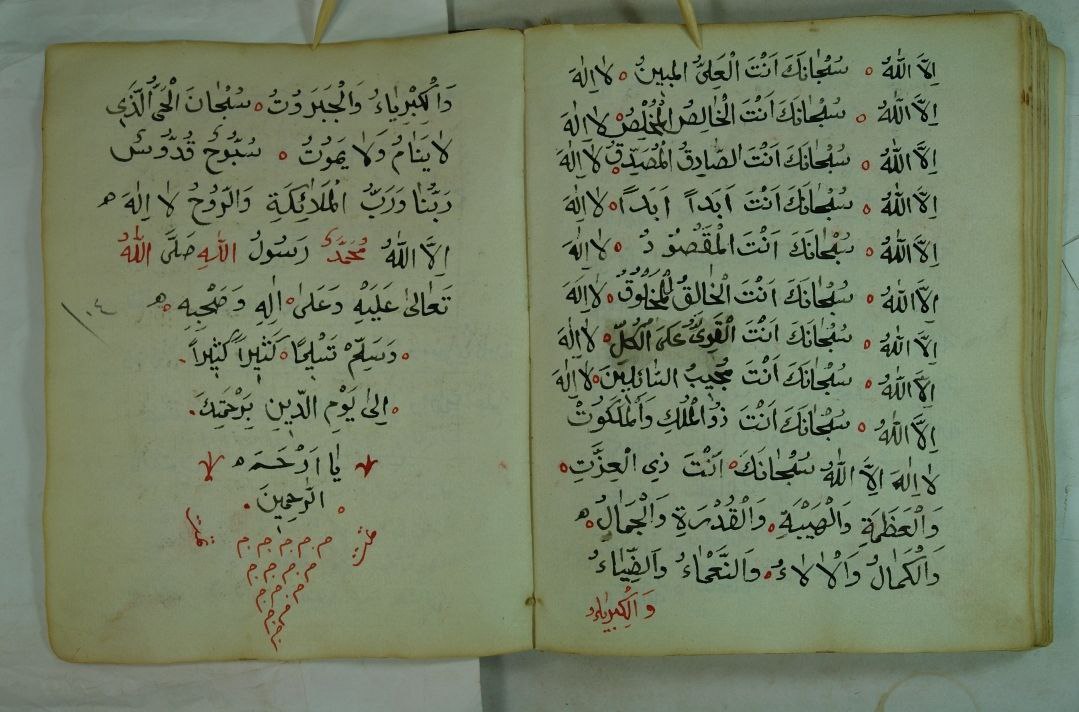 اِلَّا اللّٰهُ ○ سُبْحَانَكَ اَنْتَ الْعَلِيُّ الْمُبِينُ ○ لَا اِلٰهَ
اِلَّا اللّٰهُ ○ سُبْحَانَكَ اَنْتَ الْخَالِصُ الْمُخْلِصُ ○ لَا اِلٰهَ
اِلَّا اللّٰهُ ○ سُبْحَانَكَ اَنْتَ الصَّادِقُ الْمُصَدِّقُ ○ لَا اِلٰهَ
اِلَّا اللّٰهُ ○ سُبْحَانَكَ اَنْتَ اَبَداً اَبَداً ○ لَا اِلٰهَ
اِلَّا اللّٰهُ ○ سُبْحَانَكَ اَنْتَ الْمَقْصُودُ ○ لَا اِلٰهَ
اِلَّا اللّٰهُ ○ سُبْحَانَكَ اَنْتَ الْخَالِقُ الْمَخْلُوقُ ○ لَا اِلٰهَ
اِلَّا اللّٰهُ ○ سُبْحَانَكَ اَنْتَ الْقَوِيُّ عَلَى الْكُلِّ ○ لَا اِلٰهَ
اِلَّا اللّٰهُ ○ سُبْحَانَكَ اَنْتَ مُجِيبُ السَّائِلِينَ ○ لَا اِلٰهَ
اِلَّا اللّٰهُ ○ سُبْحَانَكَ اَنْتَ ذُو الْمُلْكِ وَالْمَلَكُوتْ
لَا اِلٰهَ اِلَّا اللّٰهُ سُبْحَانَكَ ○ اَنْتَ ذِي الْعِزَّتِ ○
وَالْعَظَمَةِ وَالْهَيْبَةِ ○ وَالْقُدْرَةِ وَالْجَمَالِ ○ ه
وَالْكَمَالُ وَالْاٰلَاءُ ○ وَالنَّعْمَاءُ وَالضِّيَاءُ
وَالْكِبْرِيَاءُ
وَالْكِبْرِيَاءُ وَالْجَبَرَوُتُ ○ سُبْحَانَ الْحَيِّ الَّذِي
لَا يَنَامُ وَلَا يَمُوتُ ○ سُبُّوحٌ قُدُّوسٌ
رَبُّنَا وَرَبُّ الْمَلَائِكَةِ وَالرُّوحُ لَا اِلٰهَ ه
اِلَّا اللّٰهُ مُحَمَّدٌ رَسُولُ اللّٰهِ صَلَّى اللّٰهُ
تَعَالٰى عَلَيْهِ وَعَلٰى ○ اٰلِهِ وَصَحْبِهِ ○ ه
١٠٤
○ وَسَلِّمْ تَسْلِيمًا ○ كَثِيراً كَثِيراً ○
○ اِلٰى يَوْمِ الدِّينِ بِرَحْمَتِكَ ○
يَا اَرْحَمَ ه
الرَّاحِمِينَ ○
تمت تمت
م م م م م
م م م م
م م م
م م
م